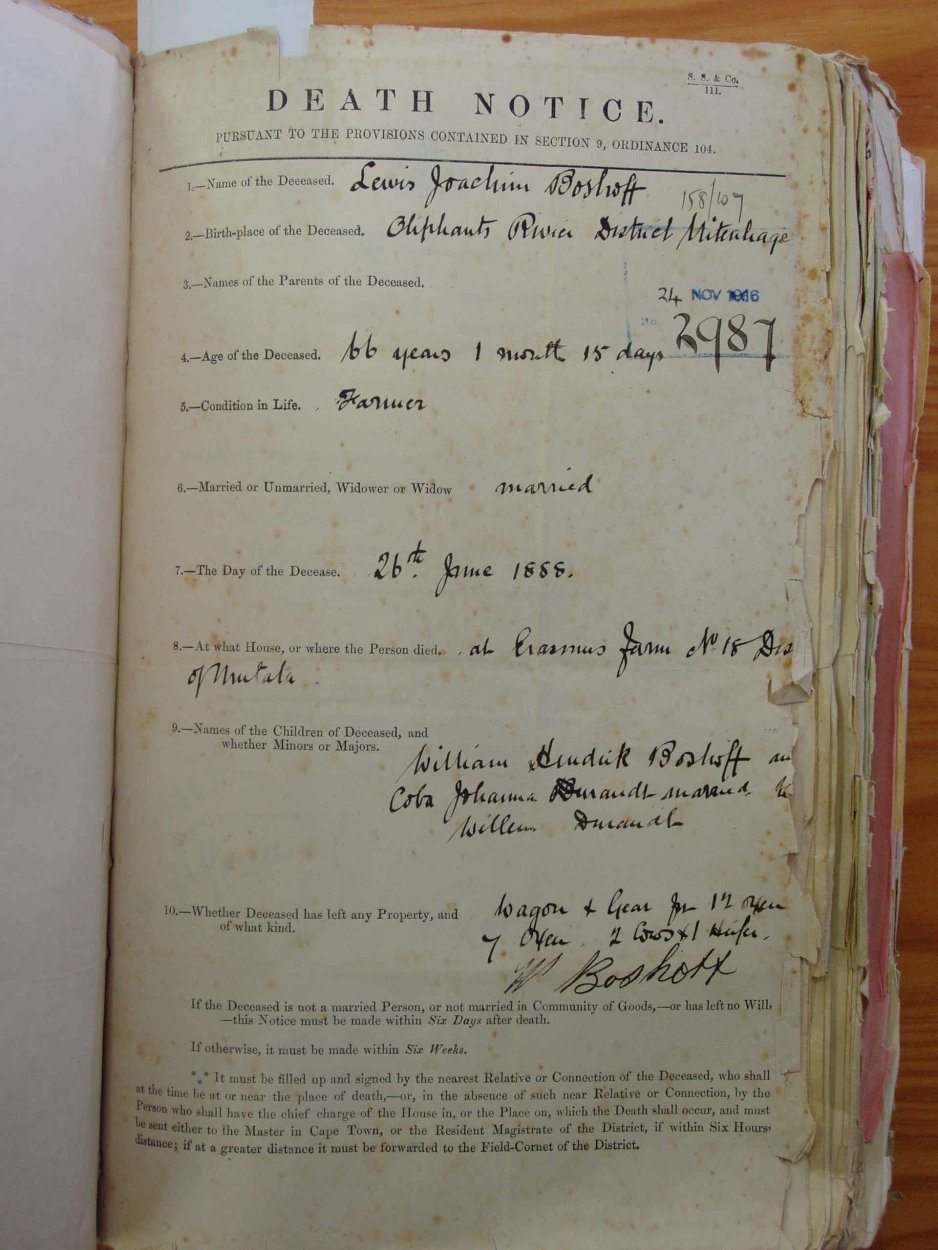 S. S. & Co.
111.
DEATH NOTICE.
PURSUANT TO THE PROVISIONS CONTAINED IN SECTION 9, ORDINANCE 104.
1.—Name of the Deceased. Lewis Joachim Boshoff
158/107
2.—Birth-place of the Deceased. Oliphants River District Uitenhage
3.—Names of the Parents of the Deceased.
24 NOV 1916
No. 2987
4.—Age of the Deceased. 66 years 1 month 15 days
5.—Condition in Life. Farmer
6.—Married or Unmarried, Widower or Widow married
7.—The Day of the Decease. 26th. June 1888.
8.—At what House, or where the Person died. at Erasmus farm No 18 Dis
of Umtata
9.—Names of the Children of Deceased, and
whether Minors or Majors.
William Hendrik Boshoff an
Coba Johanna Durandt married to
Willem Durandt
10.—Whether Deceased has left any Property, and Wagon & Gear for 12 oxen
of what kind. 7 Oxen. 2 Cows & 1 Heifer.
W Boshoff
If the Deceased is not a married Person, or not married in Community of Goods,—or has left no Will,
—this Notice must be made within Six Days after death.
If otherwise, it must be made within Six Weeks.
*** It must be filled up and signed by the nearest Relative or Connection of the Deceased, who shall
at the time be at or near the place of death,—or, in the absence of such near Relative or Connection, by the
Person who shall have the chief charge of the House in, or the Place on, which the Death shall occur, and must
be sent either to the Master in Cape Town, or the Resident Magistrate of the District, if within Six Hours'
distance; if at a greater distance it must be forwarded to the Field-Cornet of the District.